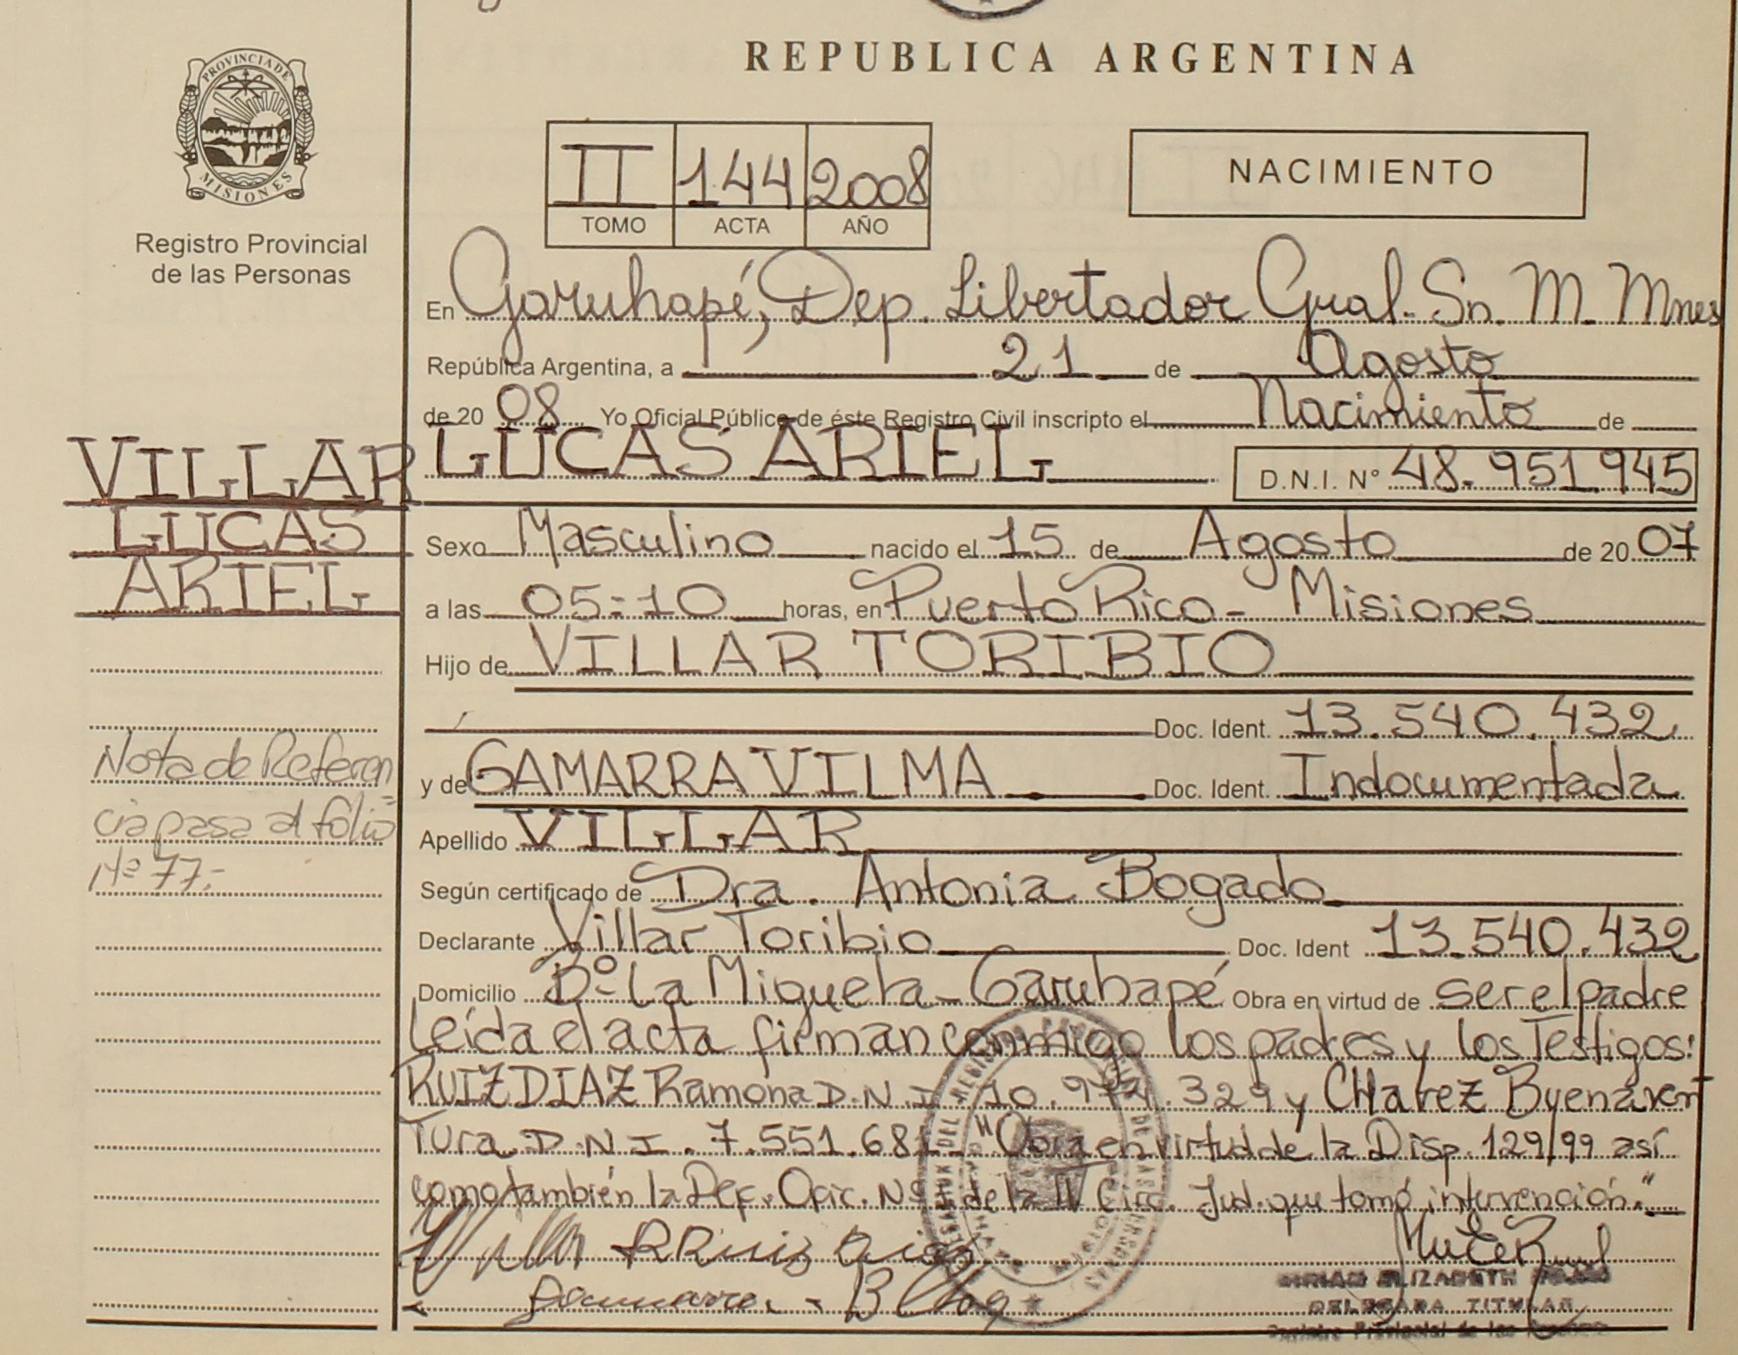 REPUBLICA ARGENTINA
PROVINCIA DE
MISIONES
Registro Provincial
de las Personas
II 144 2008
TOMO ACTA AÑO
NACIMIENTO
En Garuhapé, Dep. Libertador Gral. Sn. M. Mnes
República Argentina, a 21 de Agosto
de 20 08 Yo Oficial Público de éste Registro Civil inscripto el Nacimiento de
VILLAR LUCAS ARIEL D.N.I. Nº 48.951.945
LUCAS
ARIEL
Sexo Masculino nacido el 15 de Agosto de 20 07
a las 05:10 horas, en Puerto Rico - Misiones
Hijo de VILLAR TORIBIO
Doc. Ident. 13.540.432
y de GAMARRA VILMA Doc. Ident. Indocumentada
Nota de Referen
cia pasa al folio
Nº 77.-
Apellido VILLAR
Según certificado de Dra. Antonia Bogado
Declarante Villar Toribio Doc. Ident 13.540.432
Domicilio Bº La Miguela - Garuhapé Obra en virtud de ser el padre
Leída el acta firman conmigo los padres y los Testigos:
RUIZ DIAZ Ramona D.N.I. 10.974.329 y CHavez Buenaven
Tura D.N.I. 7.551.681 "Obra en virtud de la Disp. 129/99 así
como también la Def. Ofic. Nº de la IV Circ. Jud. que tomó intervención."
R Ruiz Diaz
ELIZABETH
DELEGADA TITULAR
Registro Provincial de las Personas